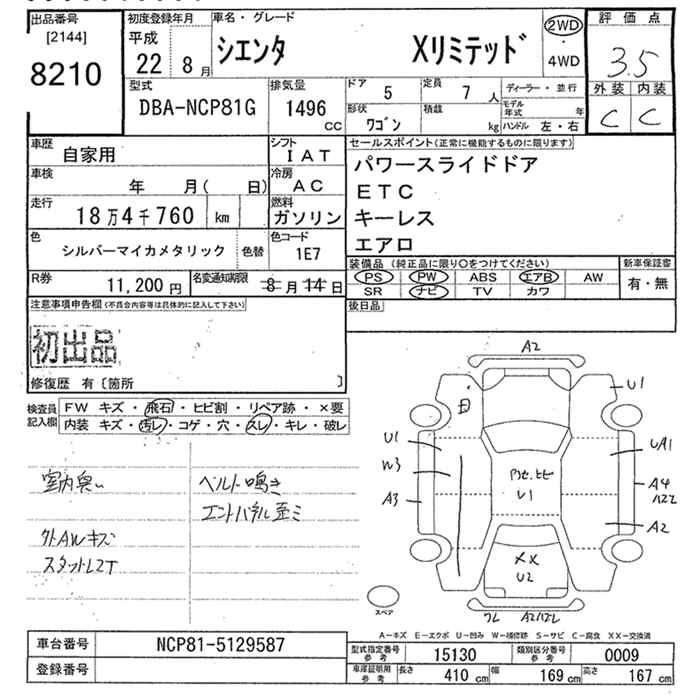 出品番号
[2144]
8210
初度登録年月
平成
22年 8月
車名・グレード
シエンタ Xリミテッド
2WD
・
4WD
評価点
3.5
外装 内装
C C
型式
DBA-NCP81G
排気量
1496
CC
ドア 5
定員 7人
形状
ワゴン
積載
kg
ディーラー・並行
モデル年式 年
ハンドル 左・右
車歴
自家用
シフト
IAT
車検
年 月( 日)
冷房
AC
走行
18万4千760 km
燃料
ガソリン
色
シルバーマイカメタリック
色替
色コード
1E7
R券
11,200円
名変通知期限
8月14日
セールスポイント(正常に機能するものに限ります)
パワースライドドア
ETC
キーレス
エアロ
装備品(純正品に限り○をつけてください)
PS PW ABS エアB AW
SR ナビ TV カワ
新車保証書
有・無
後日品
注意事項申告欄(不具合内容等は具体的に記入して下さい)
初出品
修復歴 有〔箇所 〕
検査員
記入欄
FW キズ・飛石・ヒビ割・リペア跡・×要
内装 キズ・汚レ・コゲ・穴・スレ・キレ・破レ
室内臭い
ベルト鳴き
エンドパネル歪ミ
外AWキズ
スタットレスT
A2
U1
U1
W3
A3
UA1
A4
ハズレ
A2
U1
XX
U2
スペア
ワレ A2ハズレ
A-キズ E-エクボ U-凹み W-補修跡 S-サビ C-腐食 XX-交換済
車台番号
NCP81-5129587
登録番号
型式指定番号
参考
15130
類別区分番号
参考
0009
車庫証明用
参考
長さ 410 cm
幅 169 cm
高さ 167 cm